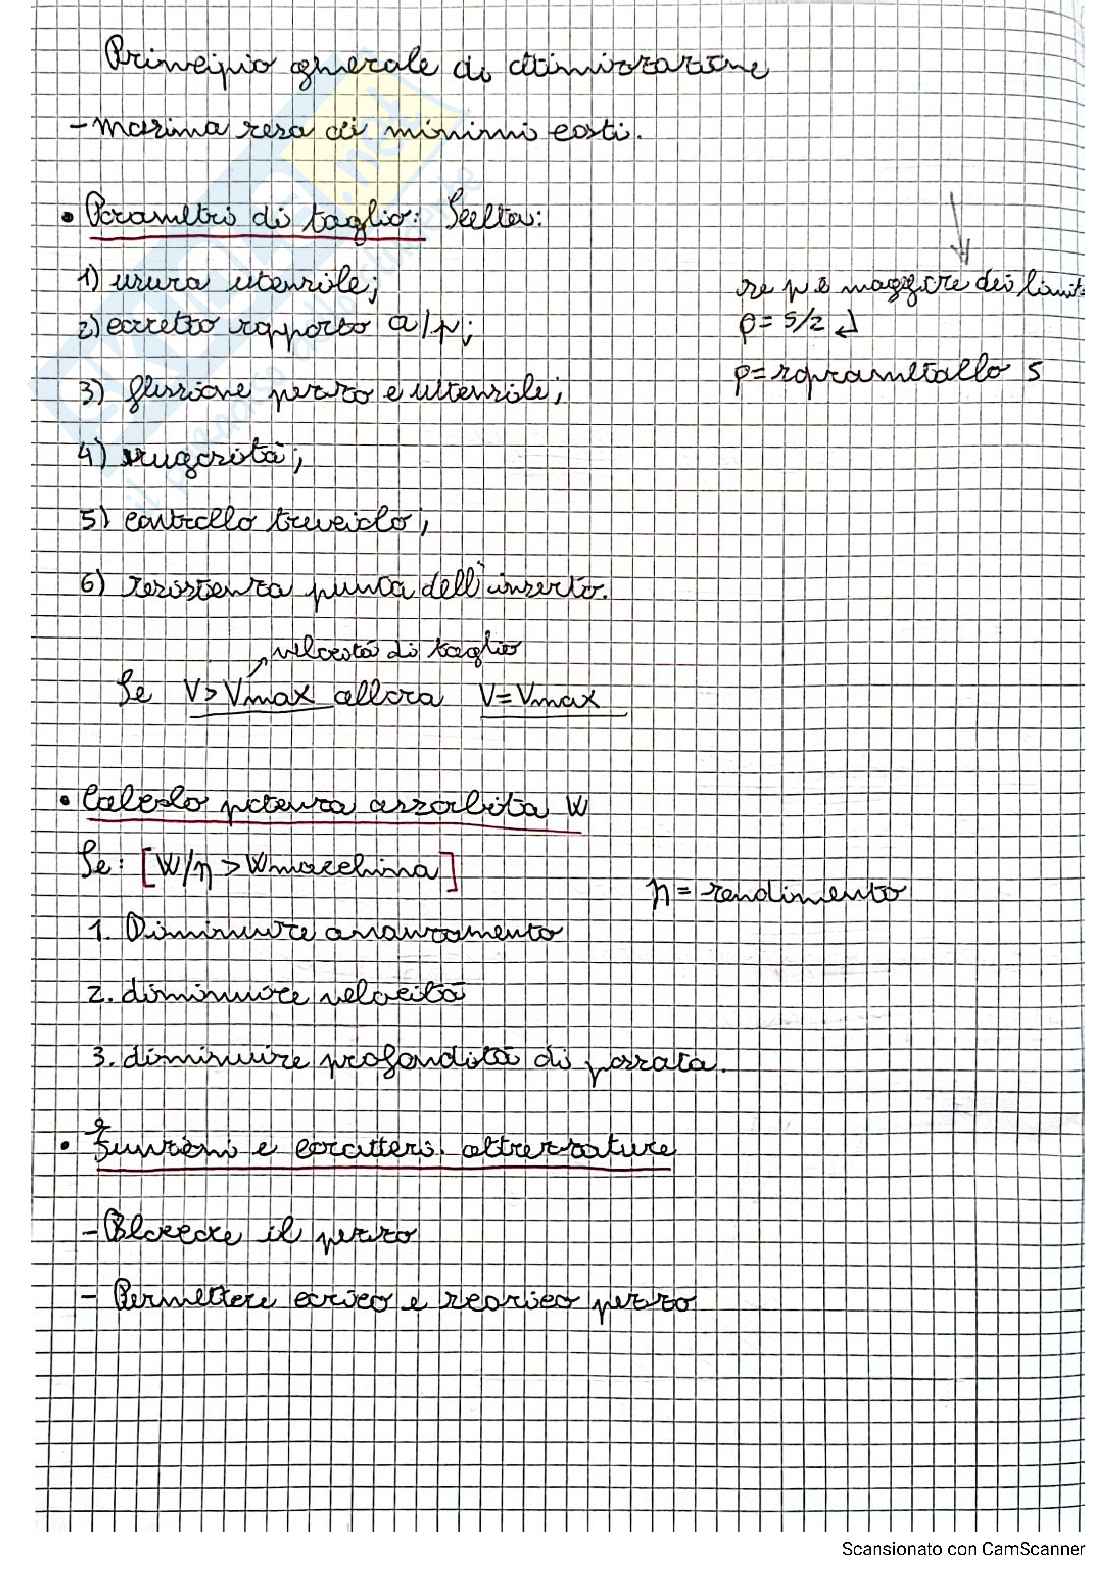 Principio generale di ottimizzazione
- massima resa ai minimi costi.
• Parametri di taglio: Scelta:
1) usura utensile;
2) corretto rapporto a/p;
3) flessione pezzo e utensile;
4) rugosità;
5) controllo truciolo;
6) resistenza punta dell'inserto.
se p è maggiore dei limit
p = s/2
p = soprametallo s
velocità di taglio
Se V > Vmax allora V = Vmax
• Calcolo potenza assorbita W
Se: [W/η > Wmacchina]
η = rendimento
1. Diminuire avanzamento
2. diminuire velocità
3. diminuire profondità di passata.
• Funzioni e caratteri. attrezzature
- Bloccare il pezzo
- Permettere carico e scarico pezzo
Scansionato con CamScanner